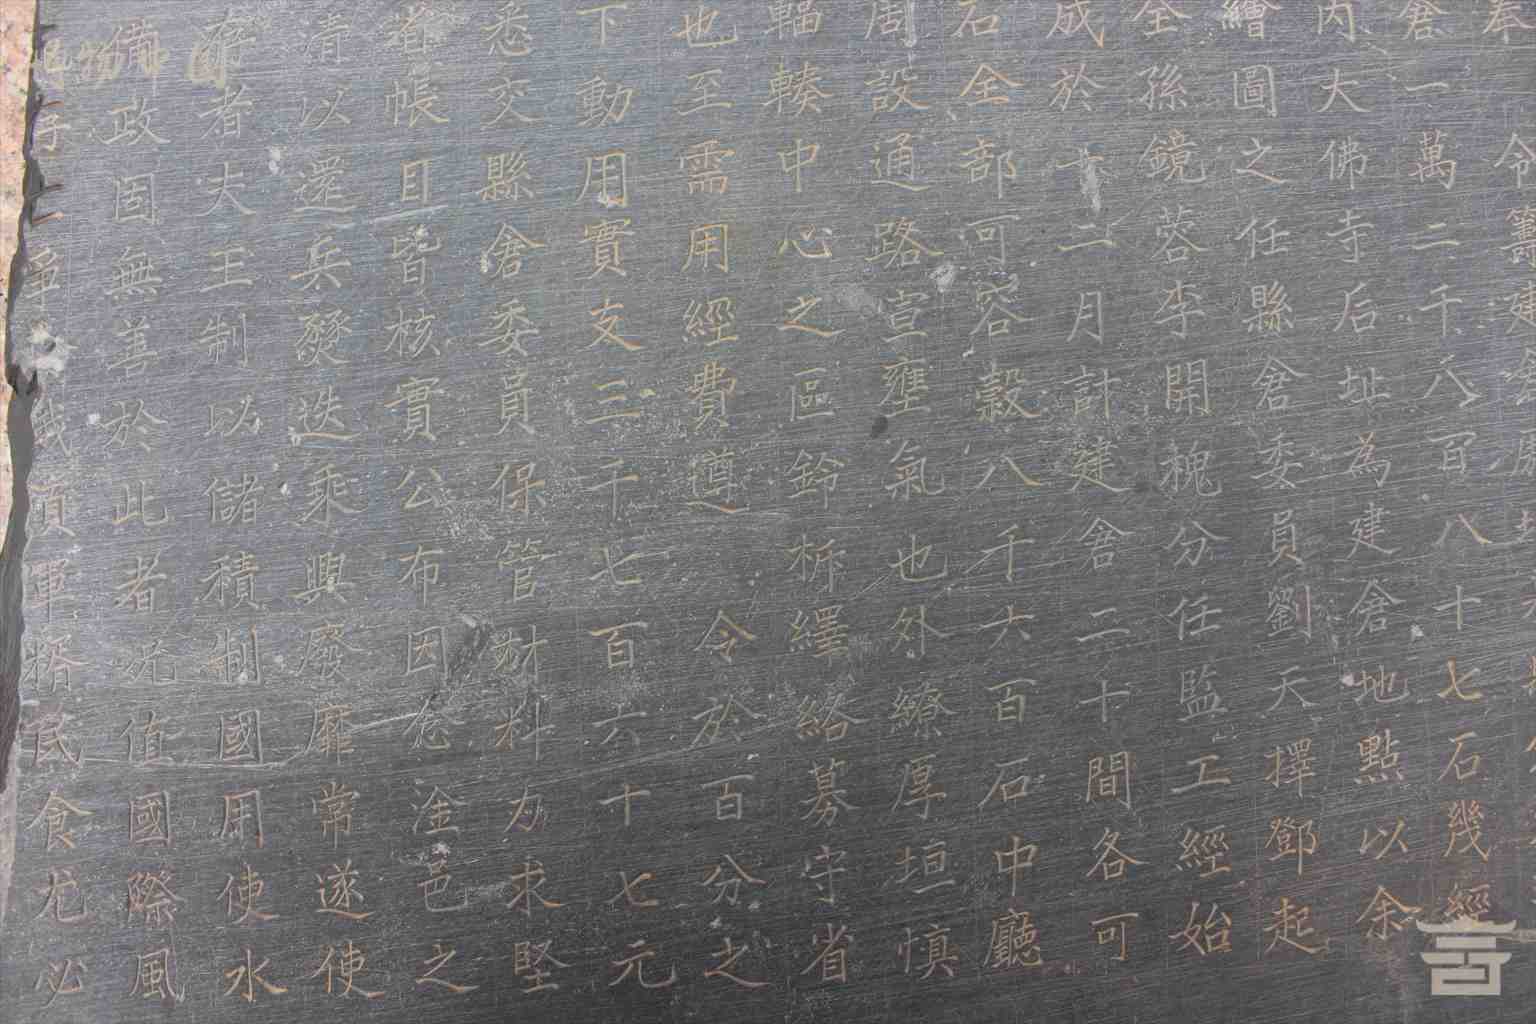 奉令籌建倉廒
倉一萬二千八百八十七石幾經
內大佛寺后址為建倉地點以余
繪圖之任縣倉委員劉天擇鄧起
全孫鏡蓉李開槐分任監工經始
成於十二月計建倉二十間各可
石全部可容穀八千六百石中廳
周設通路宣壅氣也外繚厚垣慎
輻輳中心之區鈴柝繹絡募守省
也至需用經費遵令於百分之
下動用實支三千七百六十七元
悉交縣倉委員保管材料力求堅
者帳目皆核實公布因念淦邑之
清以還兵燹迭乘興廢靡常遂使
存者夫王制以儲積制國用使水
備政固無善於此者況值國際風
爭食貢軍糈民食尤必